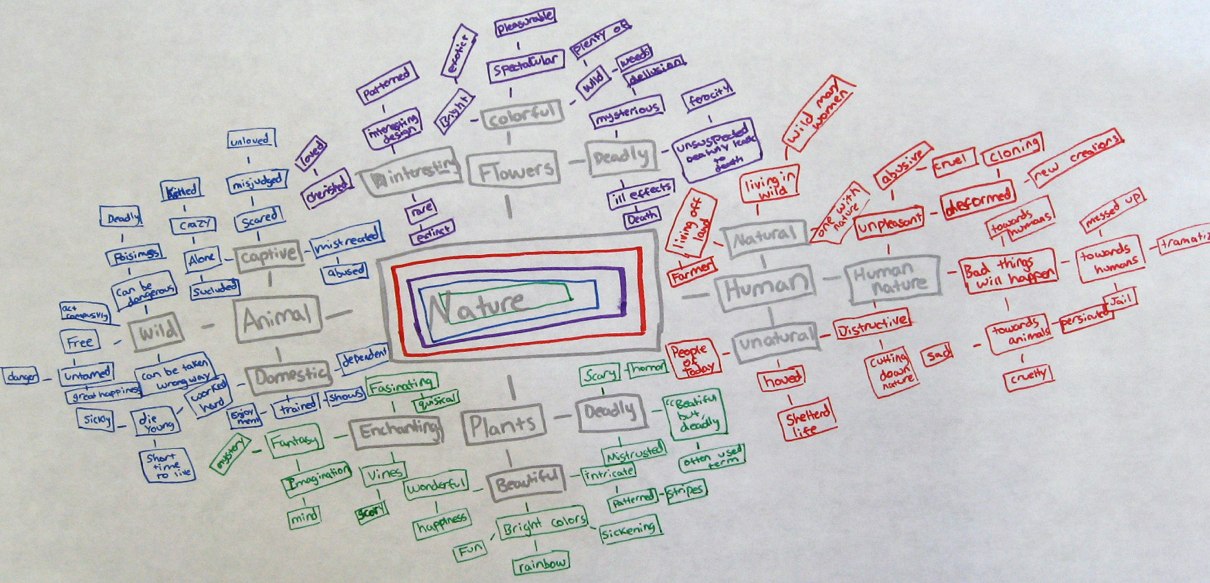 Nature
Flowers
colorful
Spectacular
pleasurable
Bright
exotict
Wild
plenty of
weeds
interesting
interesting
design
Patterned
cherished
loved
rare
extinct
Deadly
mysterious
dellusion
unsuspected
beatuty leads
to
death
ferocity
ill effects
Death
Animal
captive
Scared
misjudged
unloved
mistreated
abused
Alone
CRAZY
Killed
Sucluded
Wild
can be
dangerous
Poisiness
Deadly
act
Free
untamed
danger
great happiness
can be taken
wrong way
Domestic
dependent
trained
shows
Enjoy
ment
worked
hard
die
young
Sickly
Short
time
to live
Human
Natural
living in
wild
wild man/
women
one with
nature
living off
land
Farmer
unatural
People
of
today
housed
Shelterd
life
Distructive
cutting
down
nature
Human
nature
unpleasant
abusive
cruel
deformed
cloning
new creations
Bad things
will happen
towards
humans
towards
humans
messed up
Jail
towards
animals
sad
cruelty
Plants
Enchanting
Fasinating
quisical
Fantasy
mystery
Imagination
mind
Vines
Scary
Beautiful
wonderful
happiness
Bright colors
Fun
rainbow
Sickening
intricate
Patterned
stripes
Deadly
Scary
horror
"Beatiful
but
deadly
often used
term
Mistrusted